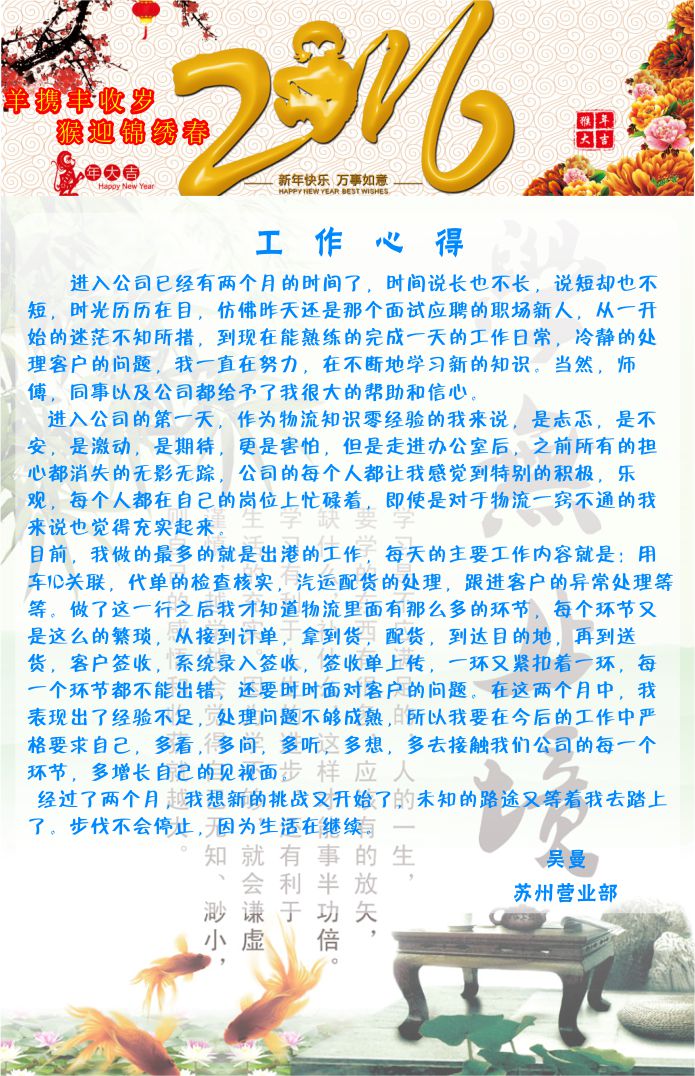 羊携丰收岁
猴迎锦绣春
2016
年大吉
Happy New Year
新年快乐 万事如意
HAPPY NEW YEAR BEST WISHES
猴年
大吉
工作心得
进入公司已经有两个月的时间了，时间说长也不长，说短却也不
短，时光历历在目，仿佛昨天还是那个面试应聘的职场新人，从一开
始的迷茫不知所措，到现在能熟练的完成一天的工作日常，冷静的处
理客户的问题，我一直在努力，在不断地学习新的知识。当然，师
傅，同事以及公司都给予了我很大的帮助和信心。
进入公司的第一天，作为物流知识零经验的我来说，是忐忑，是不
安，是激动，是期待，更是害怕，但是走进办公室后，之前所有的担
心都消失的无影无踪，公司的每个人都让我感觉到特别的积极，乐
观，每个人都在自己的岗位上忙碌着，即使是对于物流一窍不通的我
来说也觉得充实起来。
目前，我做的最多的就是出港的工作，每天的主要工作内容就是：用
车ID关联，代单的检查核实，汽运配货的处理，跟进客户的异常处理等
等。做了这一行之后我才知道物流里面有那么多的环节，每个环节又
是这么的繁琐，从接到订单，拿到货，配货，到达目的地，再到送
货，客户签收，系统录入签收，签收单上传，一环又紧扣着一环，每
一个环节都不能出错，还要时时面对客户的问题。在这两个月中，我
表现出了经验不足，处理问题不够成熟，所以我要在今后的工作中严
格要求自己，多看，多问，多听，多想，多去接触我们公司的每一个
环节，多增长自己的见视面。
经过了两个月，我想新的挑战又开始了，未知的路途又等着我去踏上
了。步伐不会停止，因为生活在继续。
吴曼
苏州营业部
學無止境